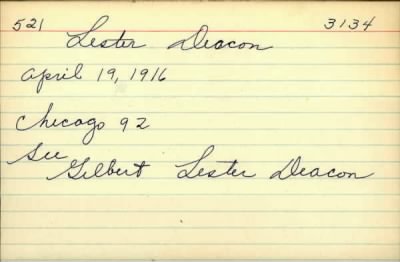 521 3134
Lester Deacon
April 19, 1916
Chicago 92
See
Gilbert Lester Deacon